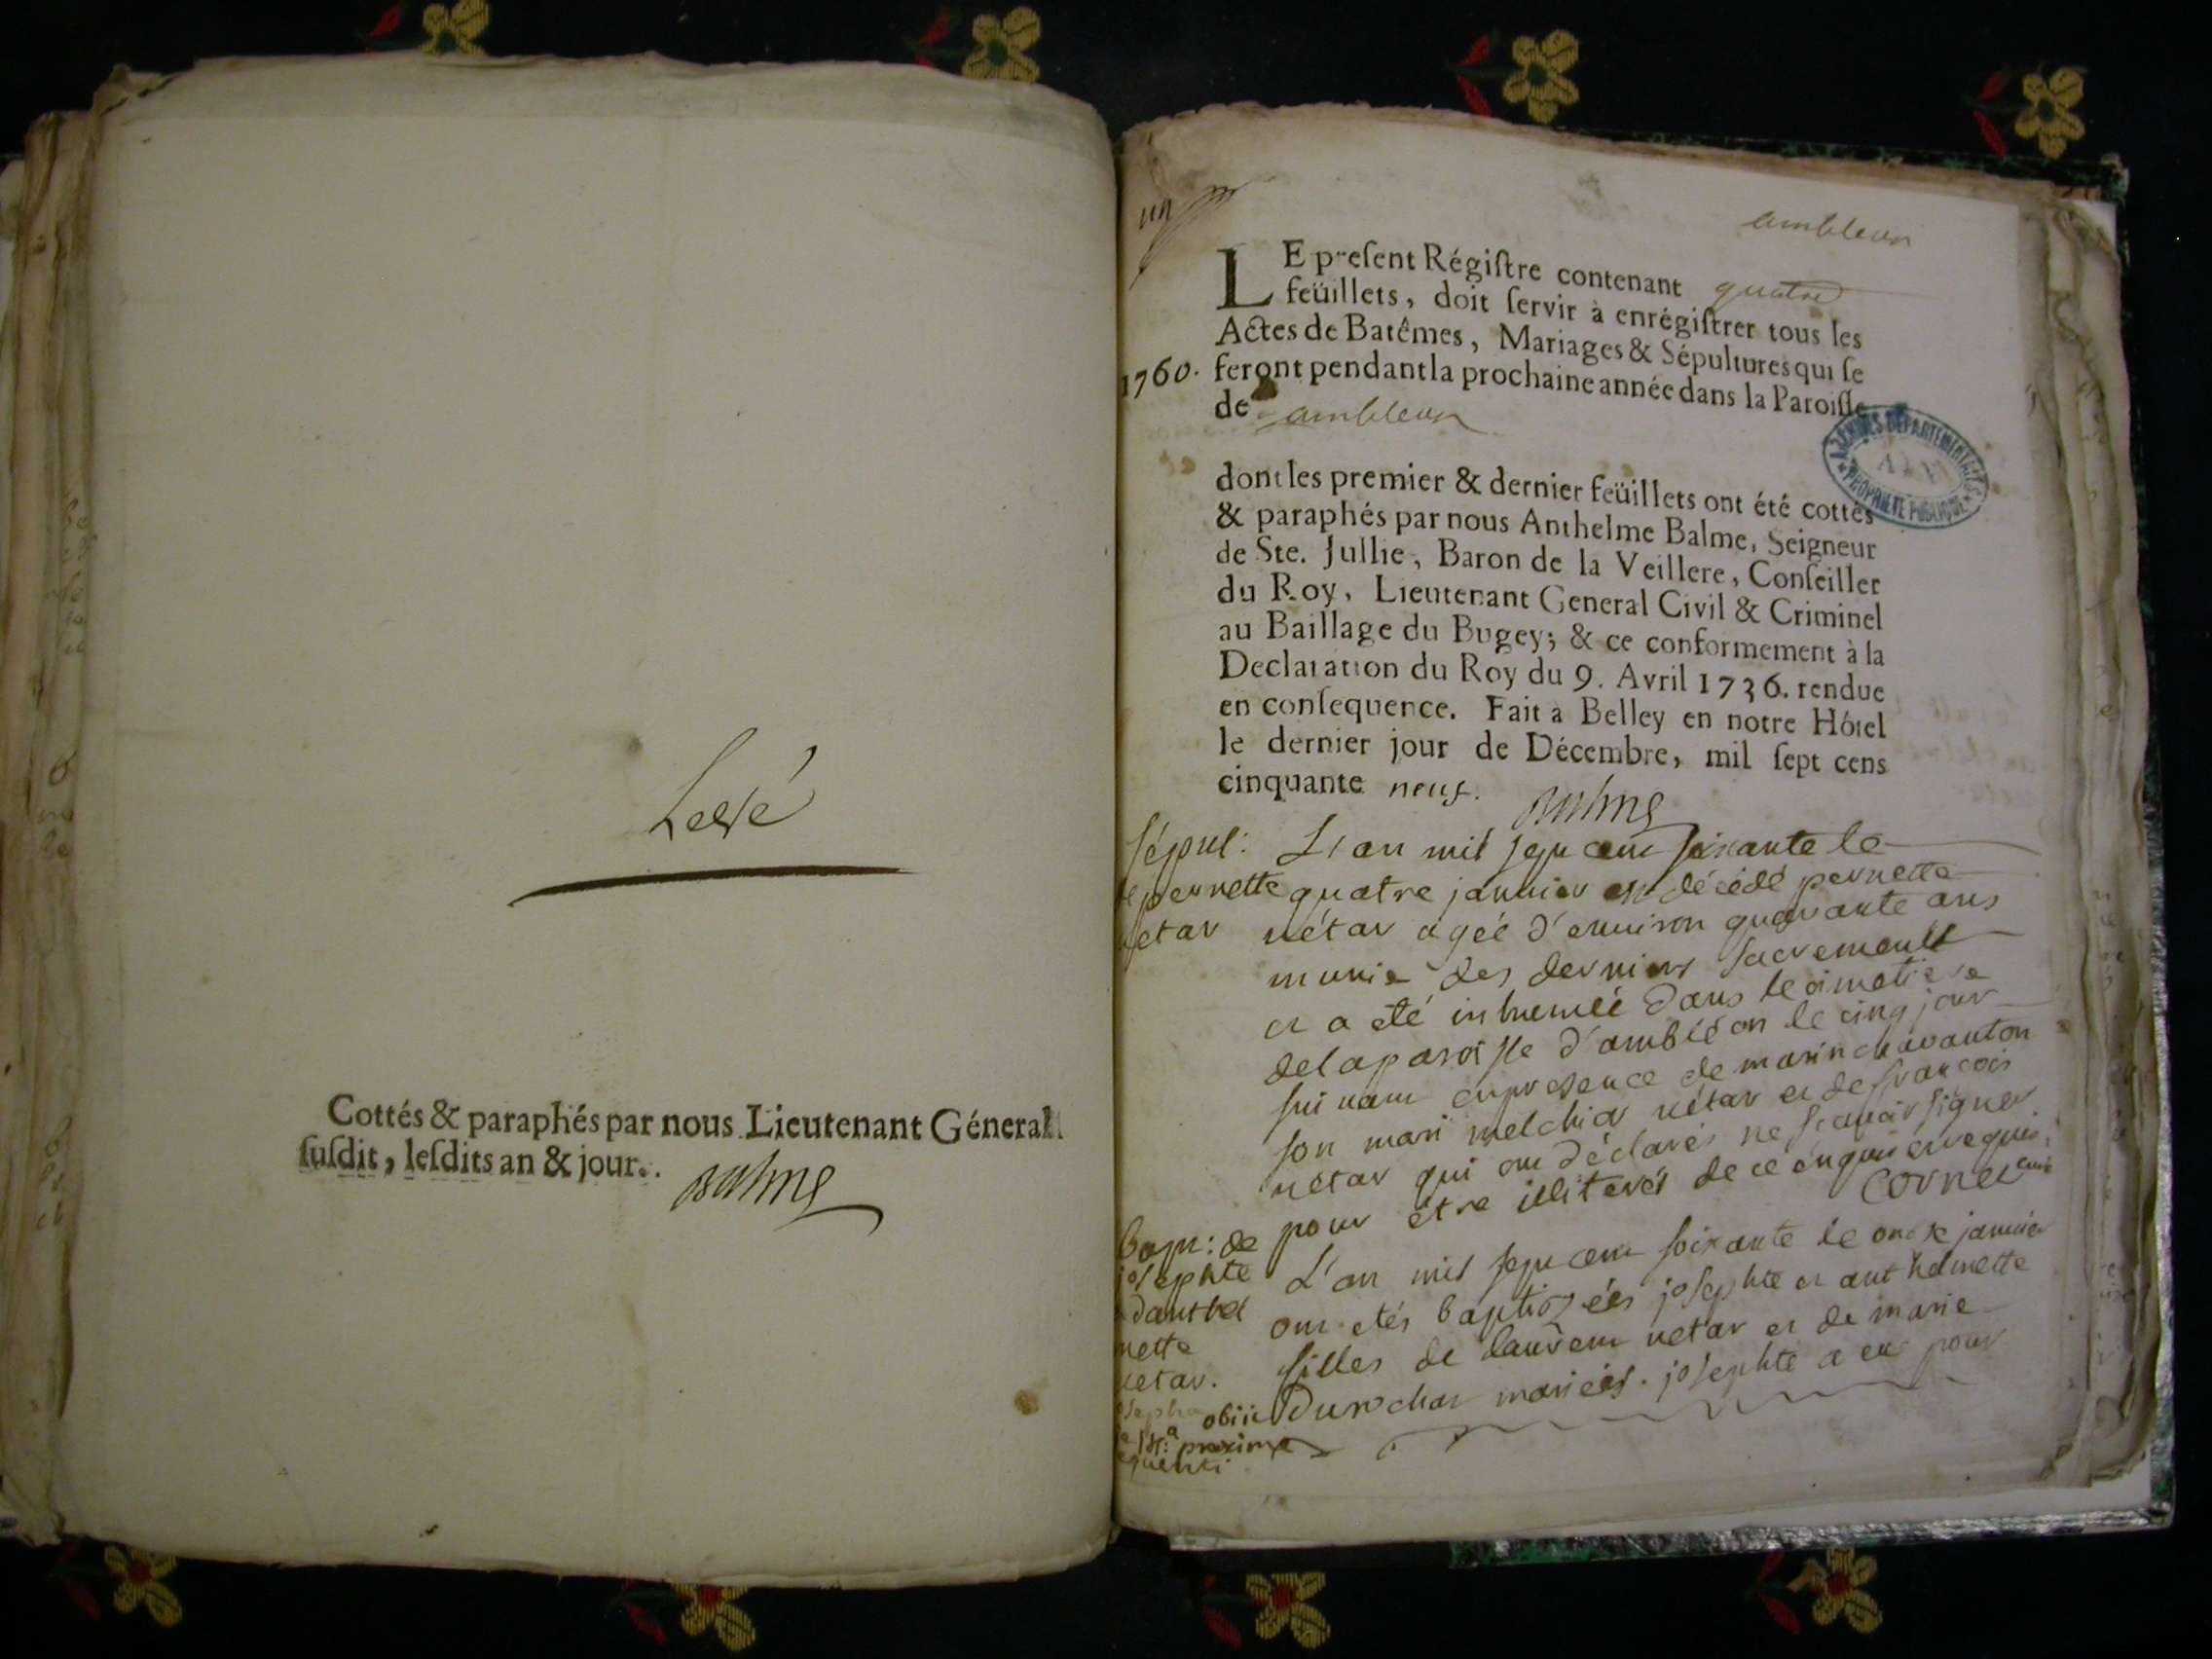 Levé
Cottés & paraphés par nous Lieutenant Géneral
susdit, lesdits an & jour.
Balme
un
ambleon
LE present Régistre contenant quatre
feüillets, doit servir à enrégistrer tous les
Actes de Batêmes, Mariages & Sépultures qui se
1760. feront pendant la prochaine année dans la Paroisse
de ambleon
ARCHIVES DÉPARTEMENTALES
AIN
PROPRIÉTÉ PUBLIQUE
dont les premier & dernier feüillets ont été cottés
& paraphés par nous Anthelme Balme, Seigneur
de Ste. Jullie, Baron de la Veillere, Conseiller
du Roy, Lieutenant General Civil & Criminel
au Baillage du Bugey; & ce conformement à la
Declaration du Roy du 9. Avril 1736. rendue
en consequence. Fait à Belley en notre Hôtel
le dernier jour de Décembre, mil sept cens
cinquante neuf.
Balme
sépul:
de pernette
vétar
L'an mil sept cent soixante le
quatre janvier est décédé pernette
vétar agéé d'environ quarante ans
munie des derniers sacrements
et a eté inhuméé dans le cimetiere
de la paroisse d'ambléon le cinq jour
suivant en presence de marin chavanton
son mari melchior vétar et de francois
vétar qui ont déclarés ne scavoir signer
pour étre illiterés de ce enquis et requis.
Cornet curé
bapt: de
josephte
et d'anthel
mette
vetar.
L'an mil sept cent soixante le onze janvier
ont etés baptizéés josephte et anthelmette
filles de laurent vetar et de marie
Durochat mariéés. josephte a eu pour
josepha obiit
die 14.a proxime
sequenti